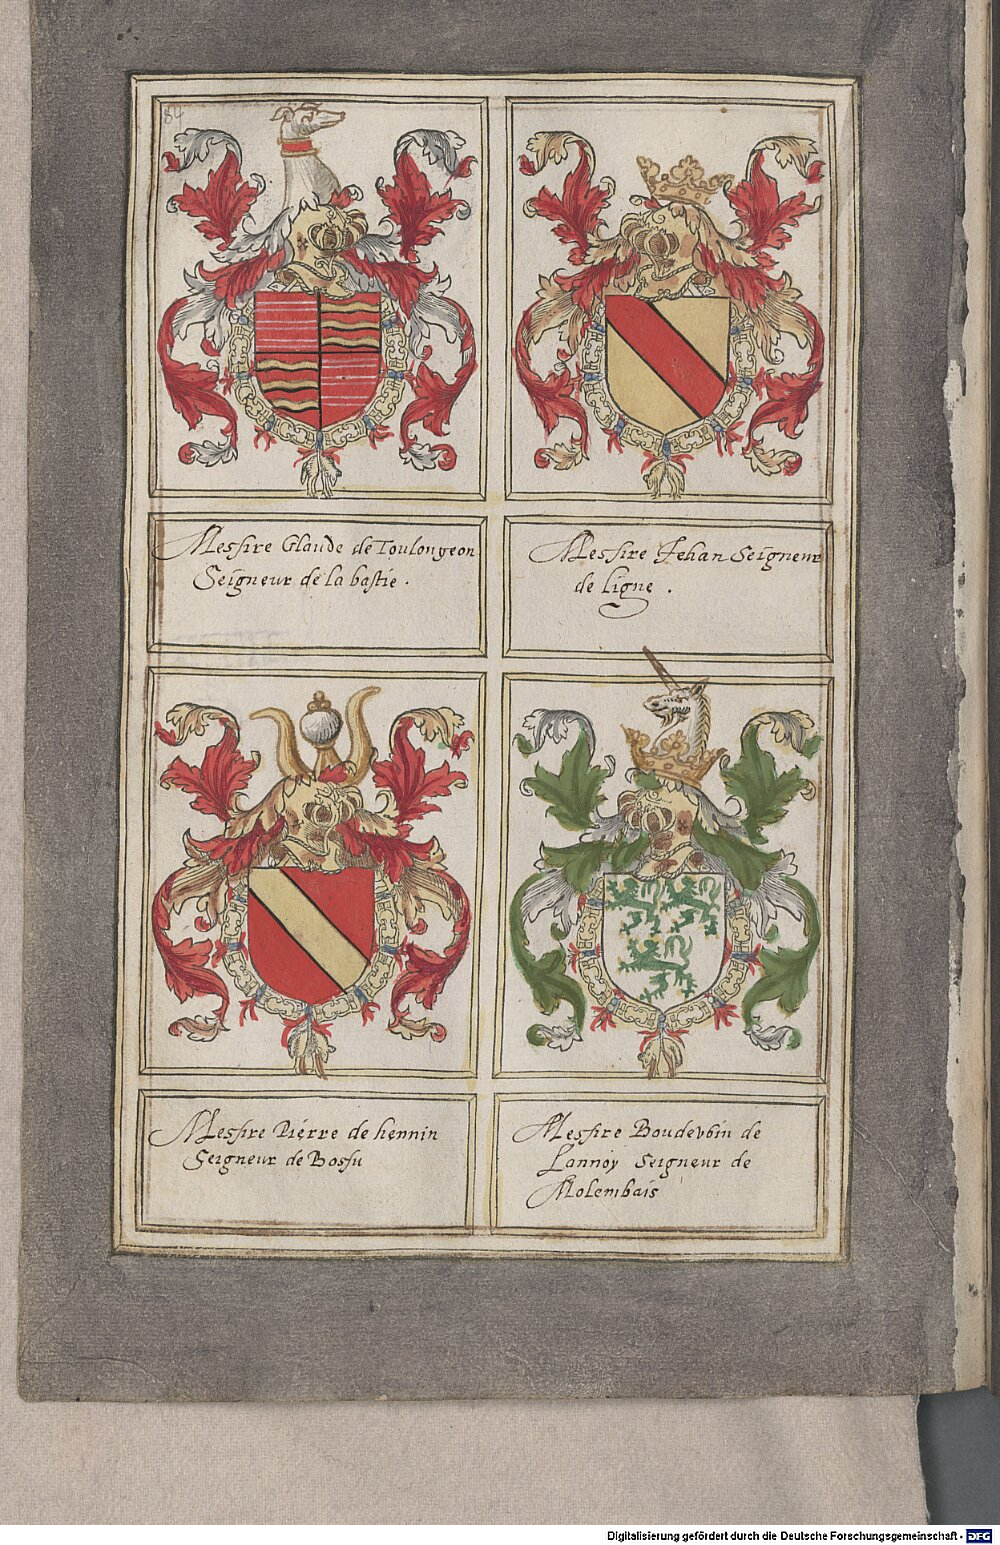 84
Messire Glaude de Toulongeon
Seigneur de la bastie .
Messire Jehan Seigneur
de Ligne .
Messire Pierre de hennin
Seigneur de Bossu
Messire Boudevbin de
Lannoy Seigneur de
Molembais
Digitalisierung gefördert durch die Deutsche Forschungsgemeinschaft - DFG